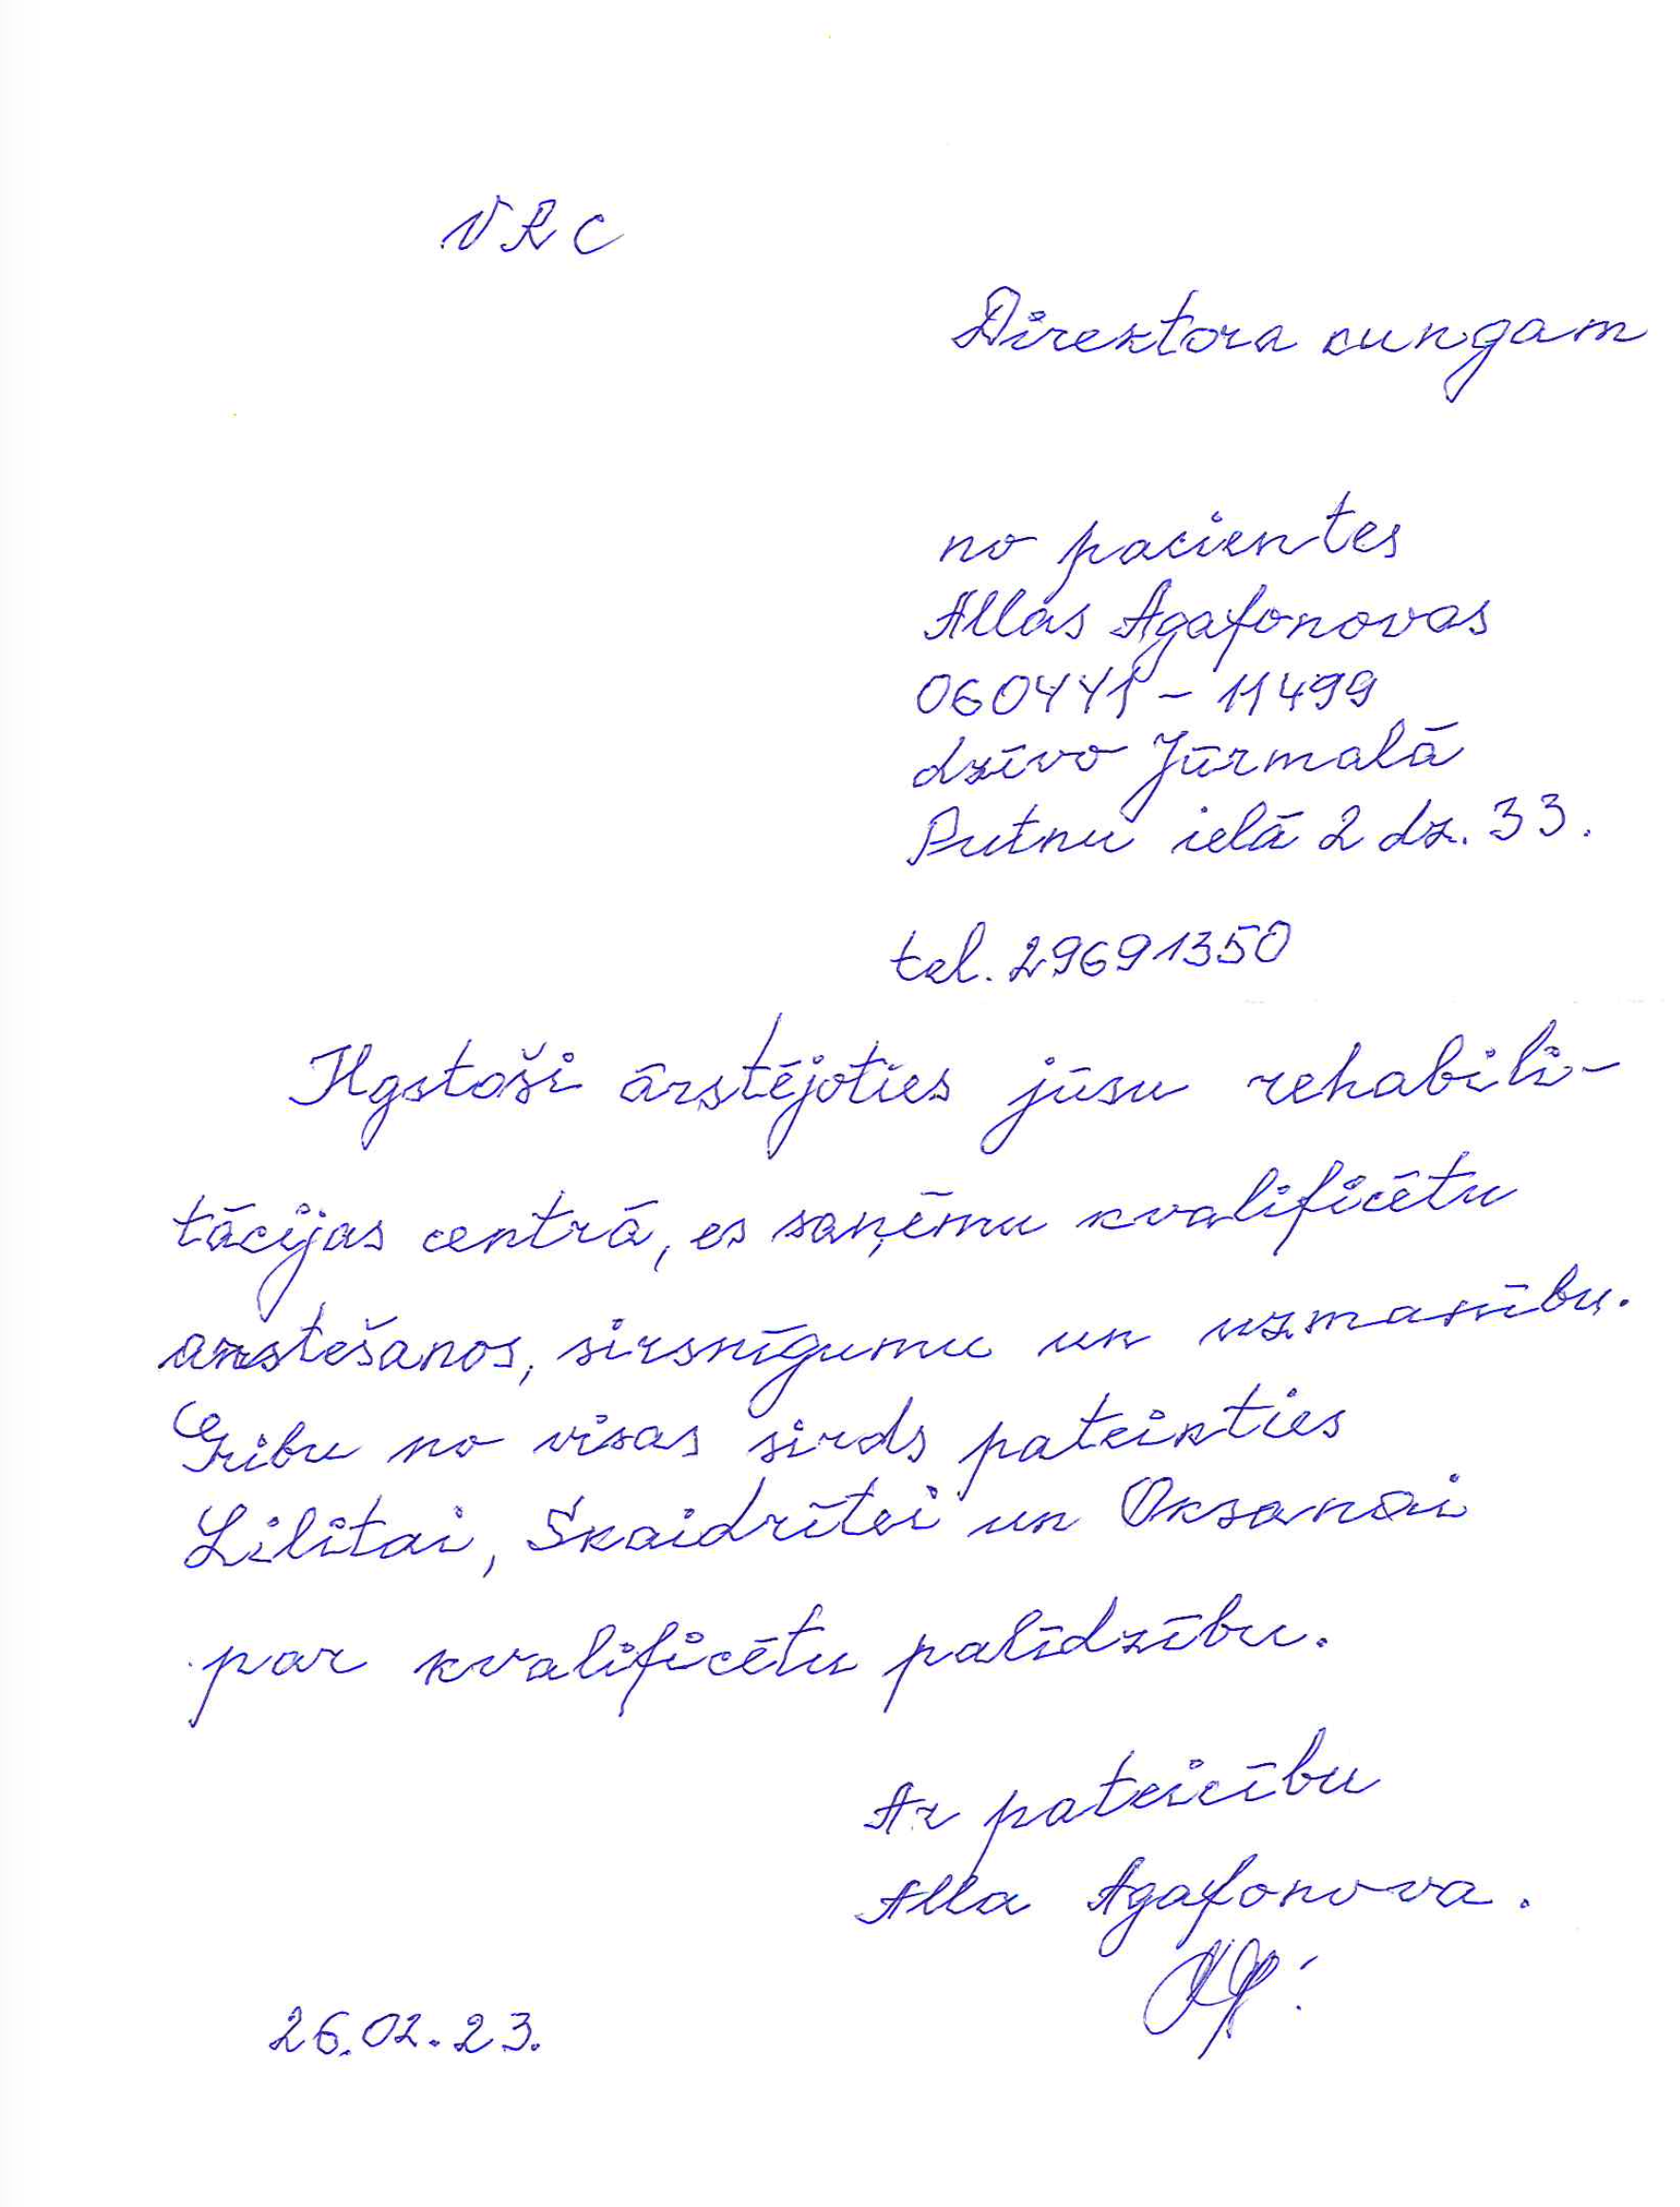 NRC
Direktora cungam
no pacientes
Allas Agafonovas
060441 - 11499
dzīvo Jūrmalā
Putnu ielā 2 dz. 33.
tel. 29691350
Ilgstoši ārstējoties jūsu rehabili-
tācijas centrā, es saņēmu kvalificētu
arstešanos, sirsnīgumu un uzmanību.
Gribu no visas sirds pateikties
Lilitai, Skaidrītei un Oksanai
par kvalificētu palīdzību.
Ar pateicību
Alla Agafonova.
26.02.23.